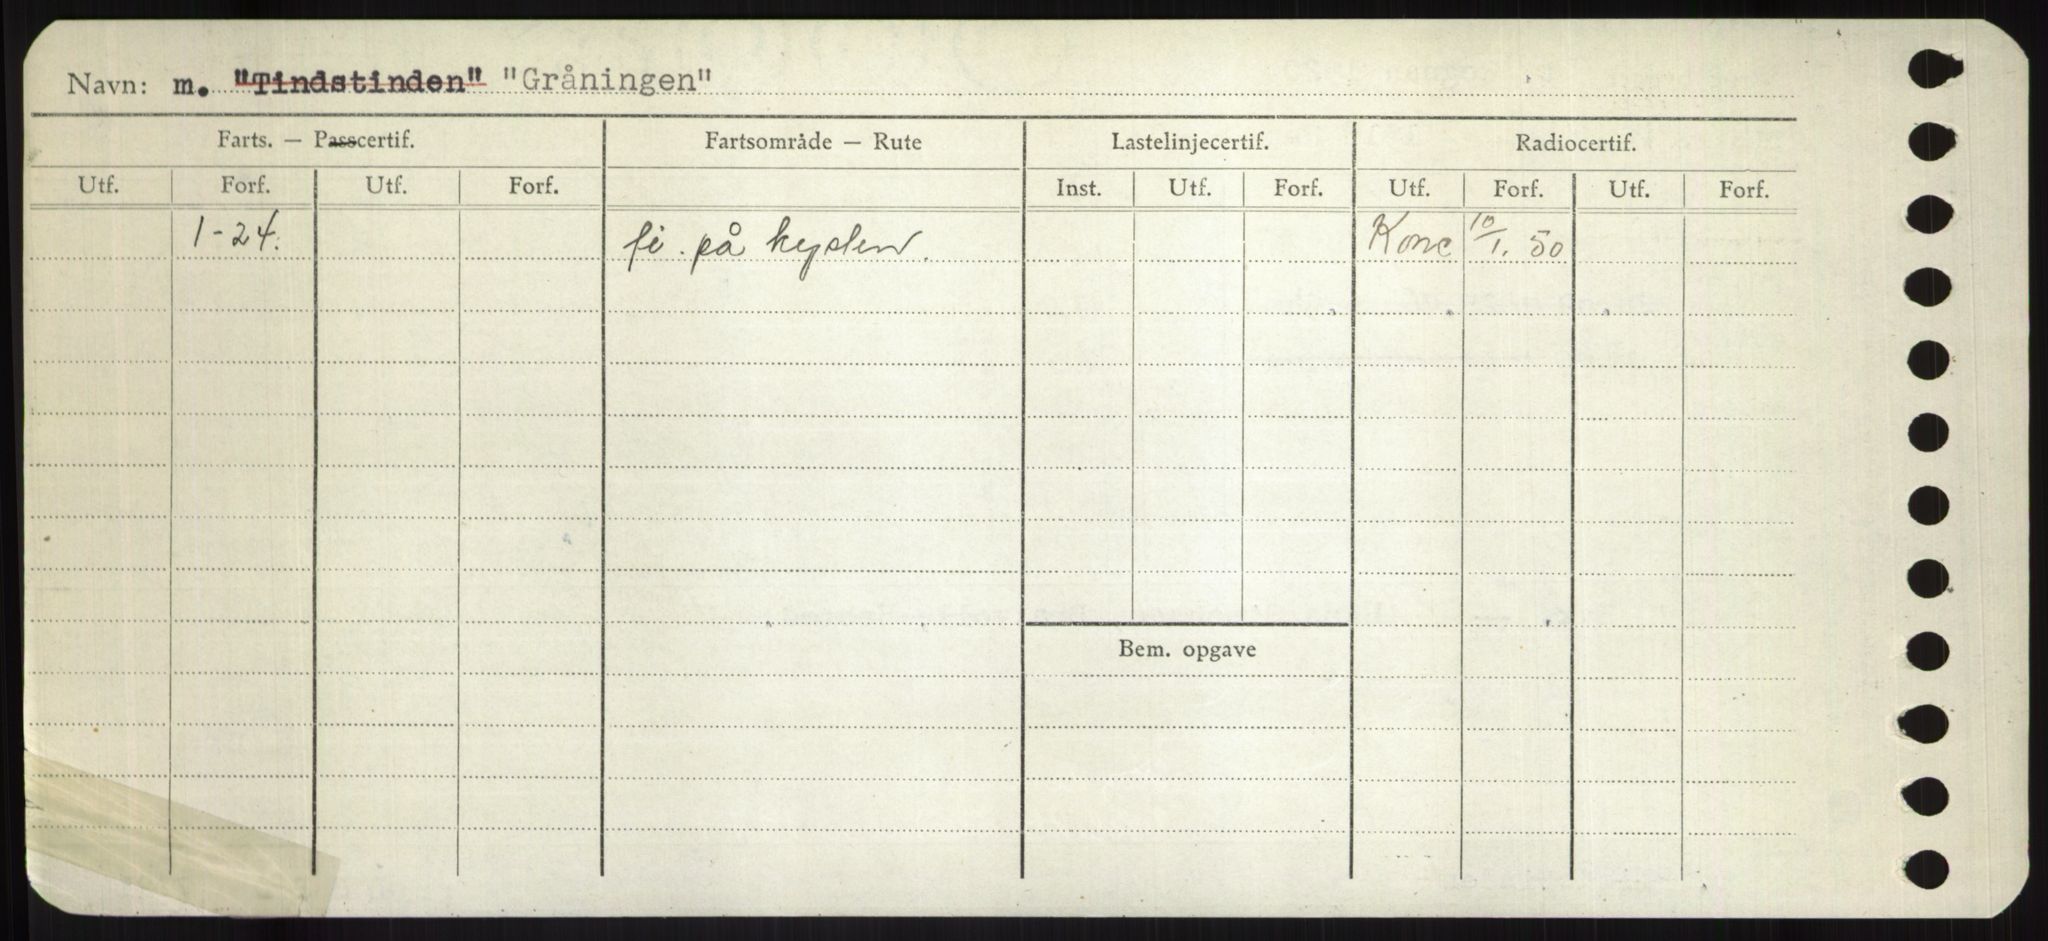 Navn: m. "Tindstinden" "Gråningen"
Farts. — Passcertif. Fartsområde — Rute Lastelinjecertif. Radiocertif.
Utf. Forf. Utf. Forf. Inst. Utf. Forf. Utf. Forf. Utf. Forf.
1-24. fi. på kysten. Konc 10/1. 50
Bem. opgave